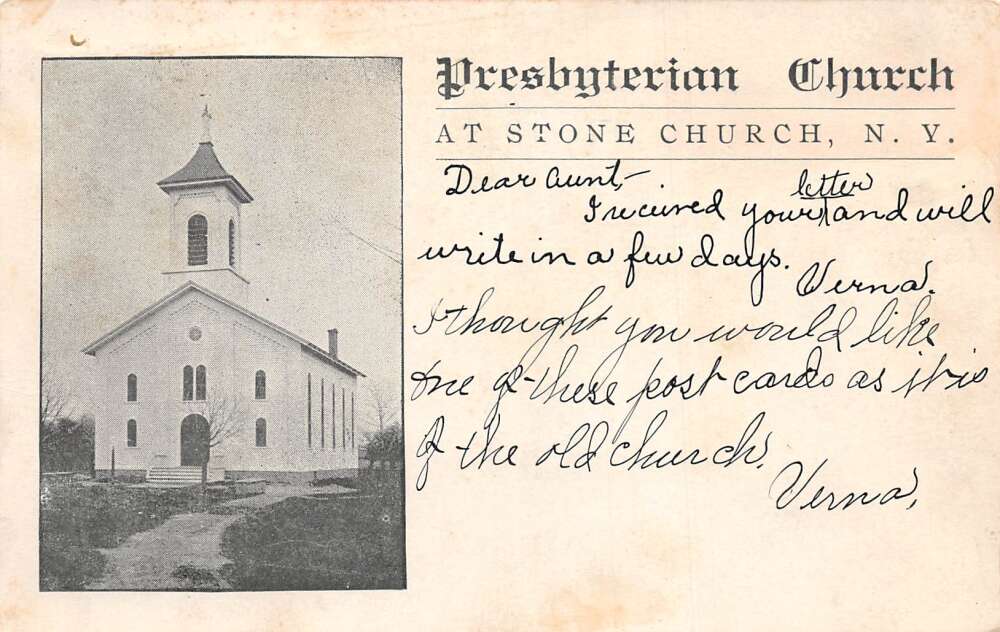 Presbyterian Church
AT STONE CHURCH, N. Y.
Dear Aunt,-
letter
I recieved your ^ and will
write in a few days.
Verna.
I thought you would like
one of these post cards as it is
of the old church.
Verna,